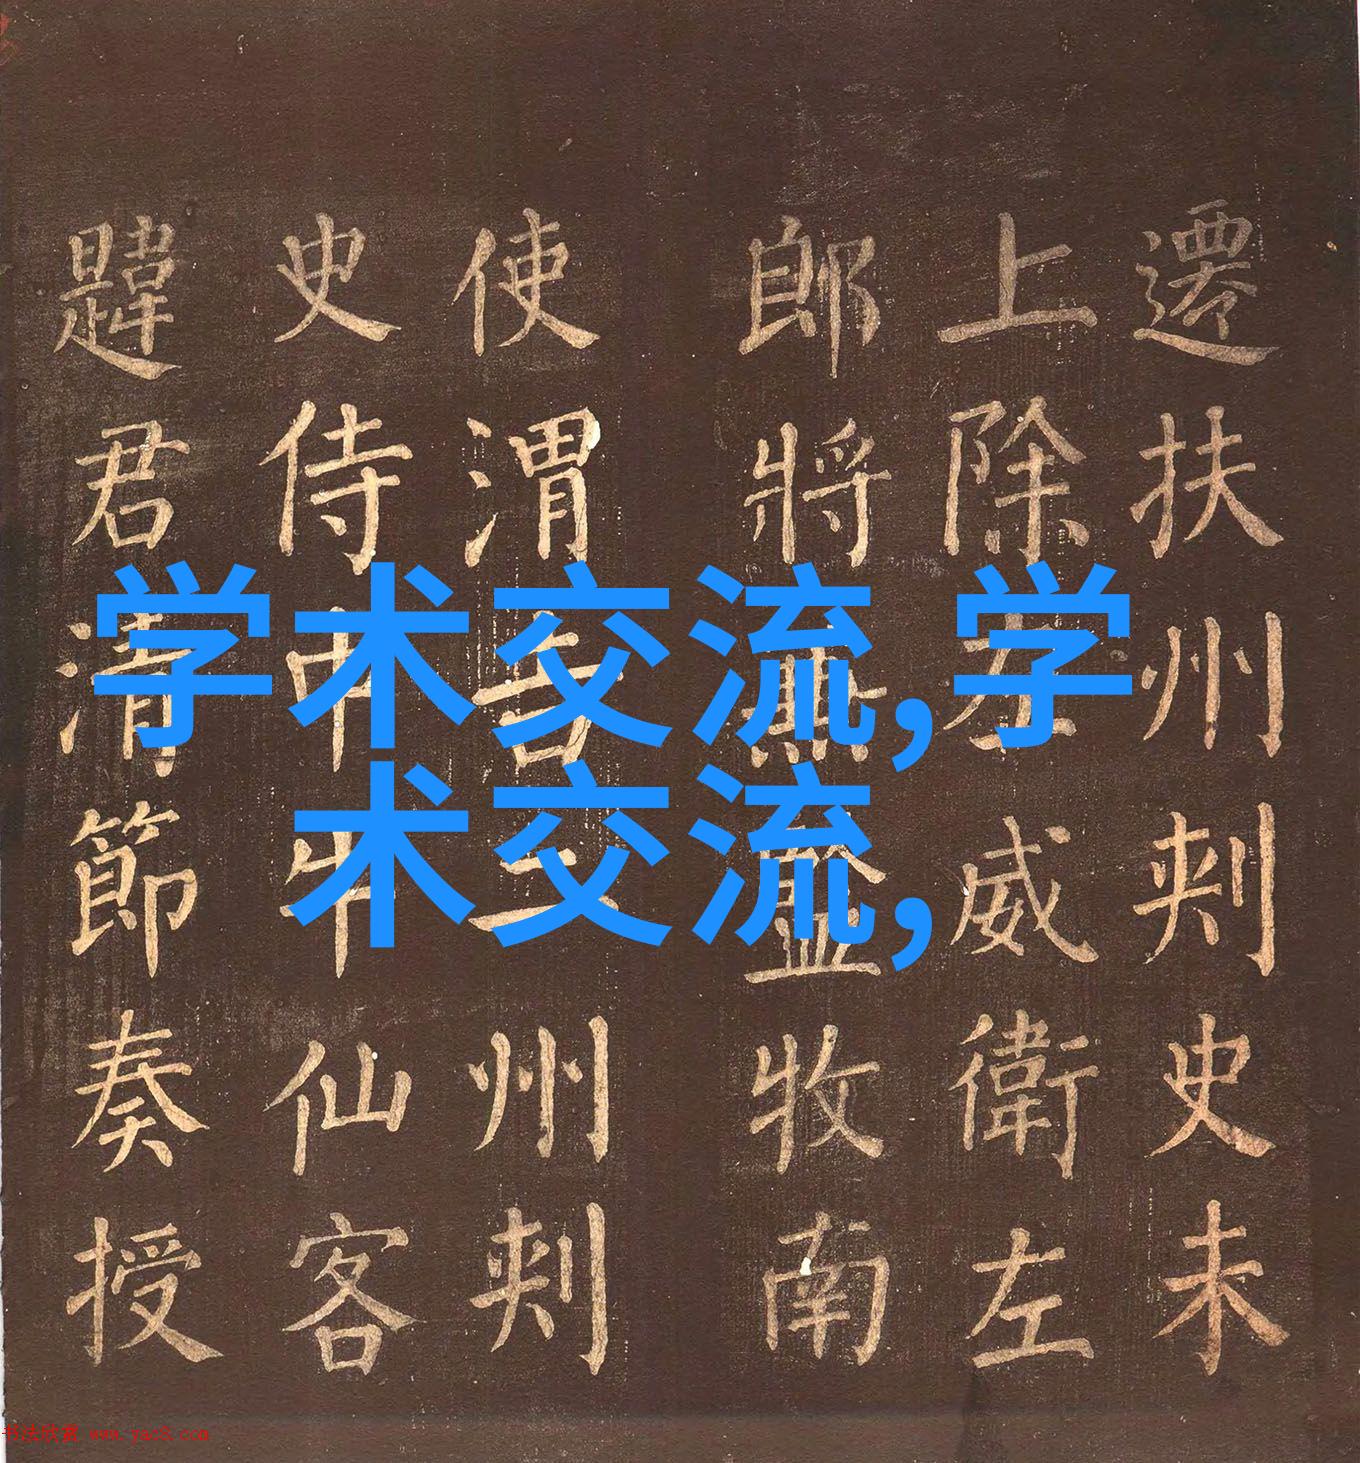 遷扶州刺史未
上除左威衛左
郎將兼監牧南
使渭吉二州刺
史侍中牛仙客
韙君清節奏授
学术交流,学
术交流,
书法欣赏 www.yac8.com